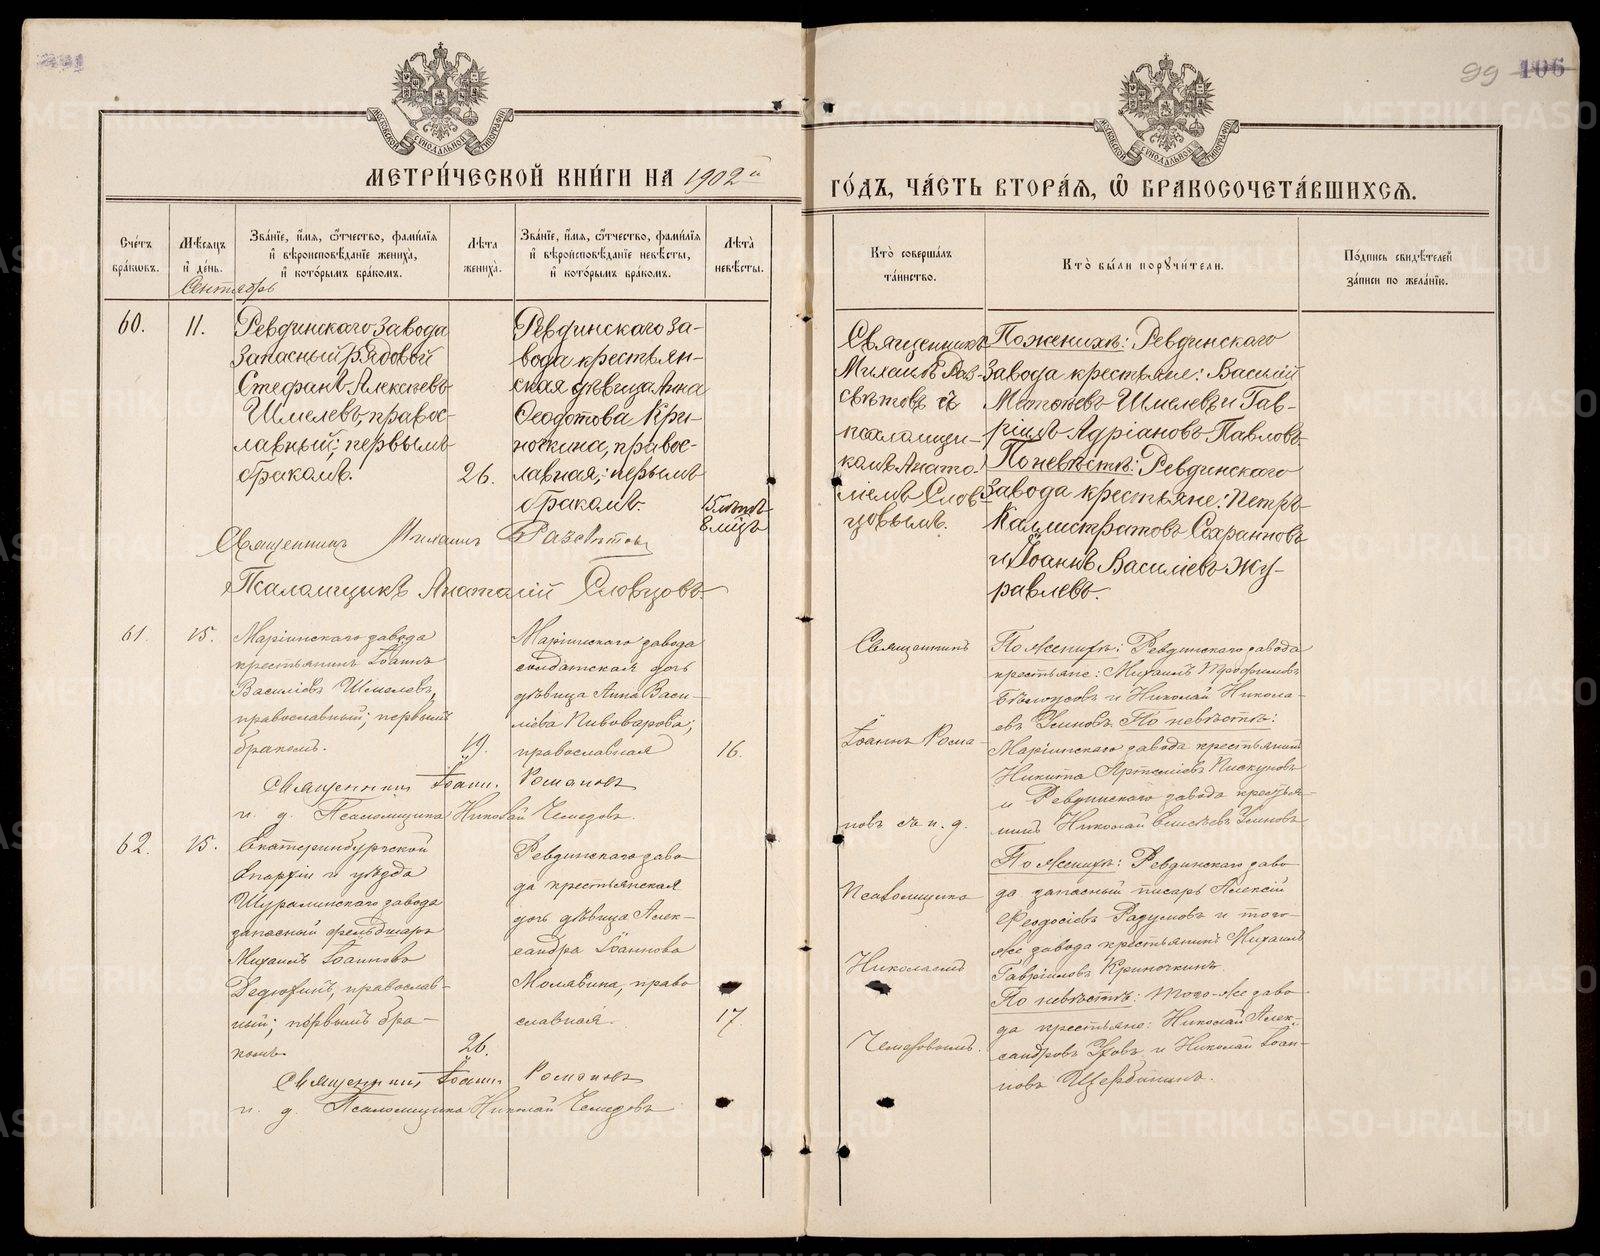 99 106
МЕТРИ́ЧЕСКОЙ КНИ́ГИ НА 1902й
ГО́ДЪ, ЧА́СТЬ ВТОРА́Ѧ, Ѿ БРАКОСОЧЕТА́ВШИХСѦ.
Счетъ браковъ.
Мѣсяцъ и день.
Зва́нїе, и́мя, ѻ҆́тчество, фами́лїя
и҆ вѣроисповѣ́данїе жениха̀,
и҆ кото́рымъ бра́комъ.
Лѣта жениха.
Зва́нїе, и́мя, ѻ҆́тчество, фами́лїя
и҆ вѣроисповѣ́данїе невѣ́сты,
и҆ кото́рымъ бра́комъ.
Лѣта невѣсты.
Кто̀ соверша́лъ
та́инство.
Кто̀ бы́ли поручи́тели.
По́дпись свидѣ́телей
за́писи по жела́нїю.
Сентябрь
60.
11.
Ревдинскаго завода
запасный рядовой
Стефанъ Алексѣевъ
Шмелевъ, правос-
лавный; первымъ
бракомъ.
26.
Ревдинскаго за-
вода крестьян-
ская дѣвица Анна
Ѳеодотова Кри-
ночкина, правос-
лавная; первымъ
бракомъ.
15 лѣтъ
8 м҃цъ
Священникъ
Михаилъ Раз-
свѣтовъ съ
псаломщи-
комъ Анато-
ліемъ Слов-
цовымъ.
По женихѣ: Ревдинскаго
завода крестьяне: Василій
Матѳеевъ Шмелевъ и Гав-
ріилъ Адріановъ Павловъ
По невѣстѣ: Ревдинскаго
завода крестьяне: Петръ
Каллистратовъ Сохранновъ
и Іоаннъ Василіевъ Жу-
равлевъ.
Священникъ Михаилъ Разсвѣтовъ
Псаломщикъ Анатолій Словцовъ
61.
15.
Маріинскаго завода
крестьянинъ Іоаннъ
Василіевъ Шмелевъ,
православный; первымъ
бракомъ.
19.
Маріинскаго завода
солдатская дочь
дѣвица Анна Васи-
лiева Пивоварова;
православная
16.
Священникъ
Іоаннъ Рома-
новъ съ и. д.
Псаломщика
Николаемъ
Чемезовымъ.
По женихѣ: Ревдинскаго завода
крестьяне: Михаилъ Трофимовъ
Бѣлоусовъ и Николай Никола-
евъ Усиновъ. По невѣстѣ:
Маріинскаго завода крестьянинъ
Никита Артеміевъ Пискуновъ
и Ревдинскаго завода крестья-
нинъ Николай
Священникъ Іоаннъ Романовъ
и. д. Псаломщика Николай Чемезовъ.
62.
15.
Екатеринбургской
Епархіи и уѣзда
Шуралинскаго завода
запасный фельдшеръ
Михаилъ Іоанновъ
Дедюхинъ, православ-
ный; первымъ бра-
комъ.
26.
Ревдинскаго заво-
да крестьянская
дочь дѣвица Алек-
сандра Іоаннова
Молявина, право
славная.
17.
По женихѣ: Ревдинскаго заво
да запасный писарь Алексій
Ѳеодосіевъ Разумовъ и того-
же завода крестьянинъ Михаилъ
Гавріиловъ Криночкинъ.
По невѣстѣ: того-же заво
да крестьяне: Николай Алек-
сандровъ и Николай Іоан-
новъ Щербининъ.
Священникъ Іоаннъ Романовъ
и. д. Псаломщика Николай Чемезовъ
METRIKI.GASO-URAL.RU